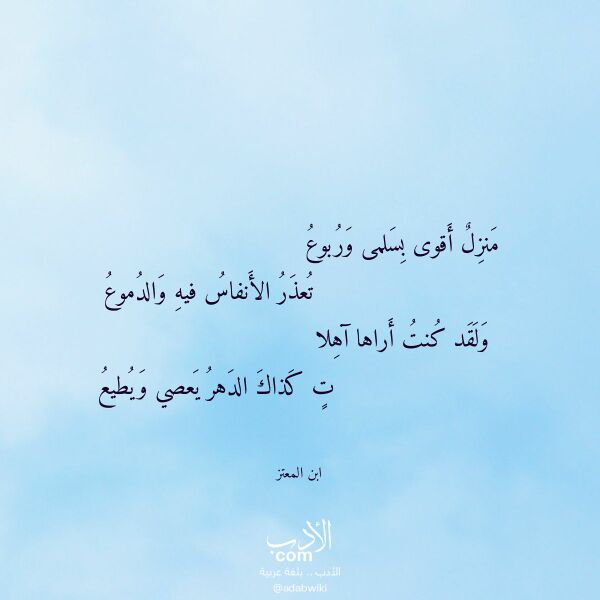 مَنزِلٌ أَقوى بِسَلمى وَرُبوعُ
تُعذَرُ الأَنفاسُ فيهِ وَالدُموعُ
وَلَقَد كُنتُ أَراها آهِلا
تٍ كَذاكَ الدَهرُ يَعصي وَيُطيعُ
ابن المعتز
الأدب
com
الأدب .. بلغة عربية
@adabwiki